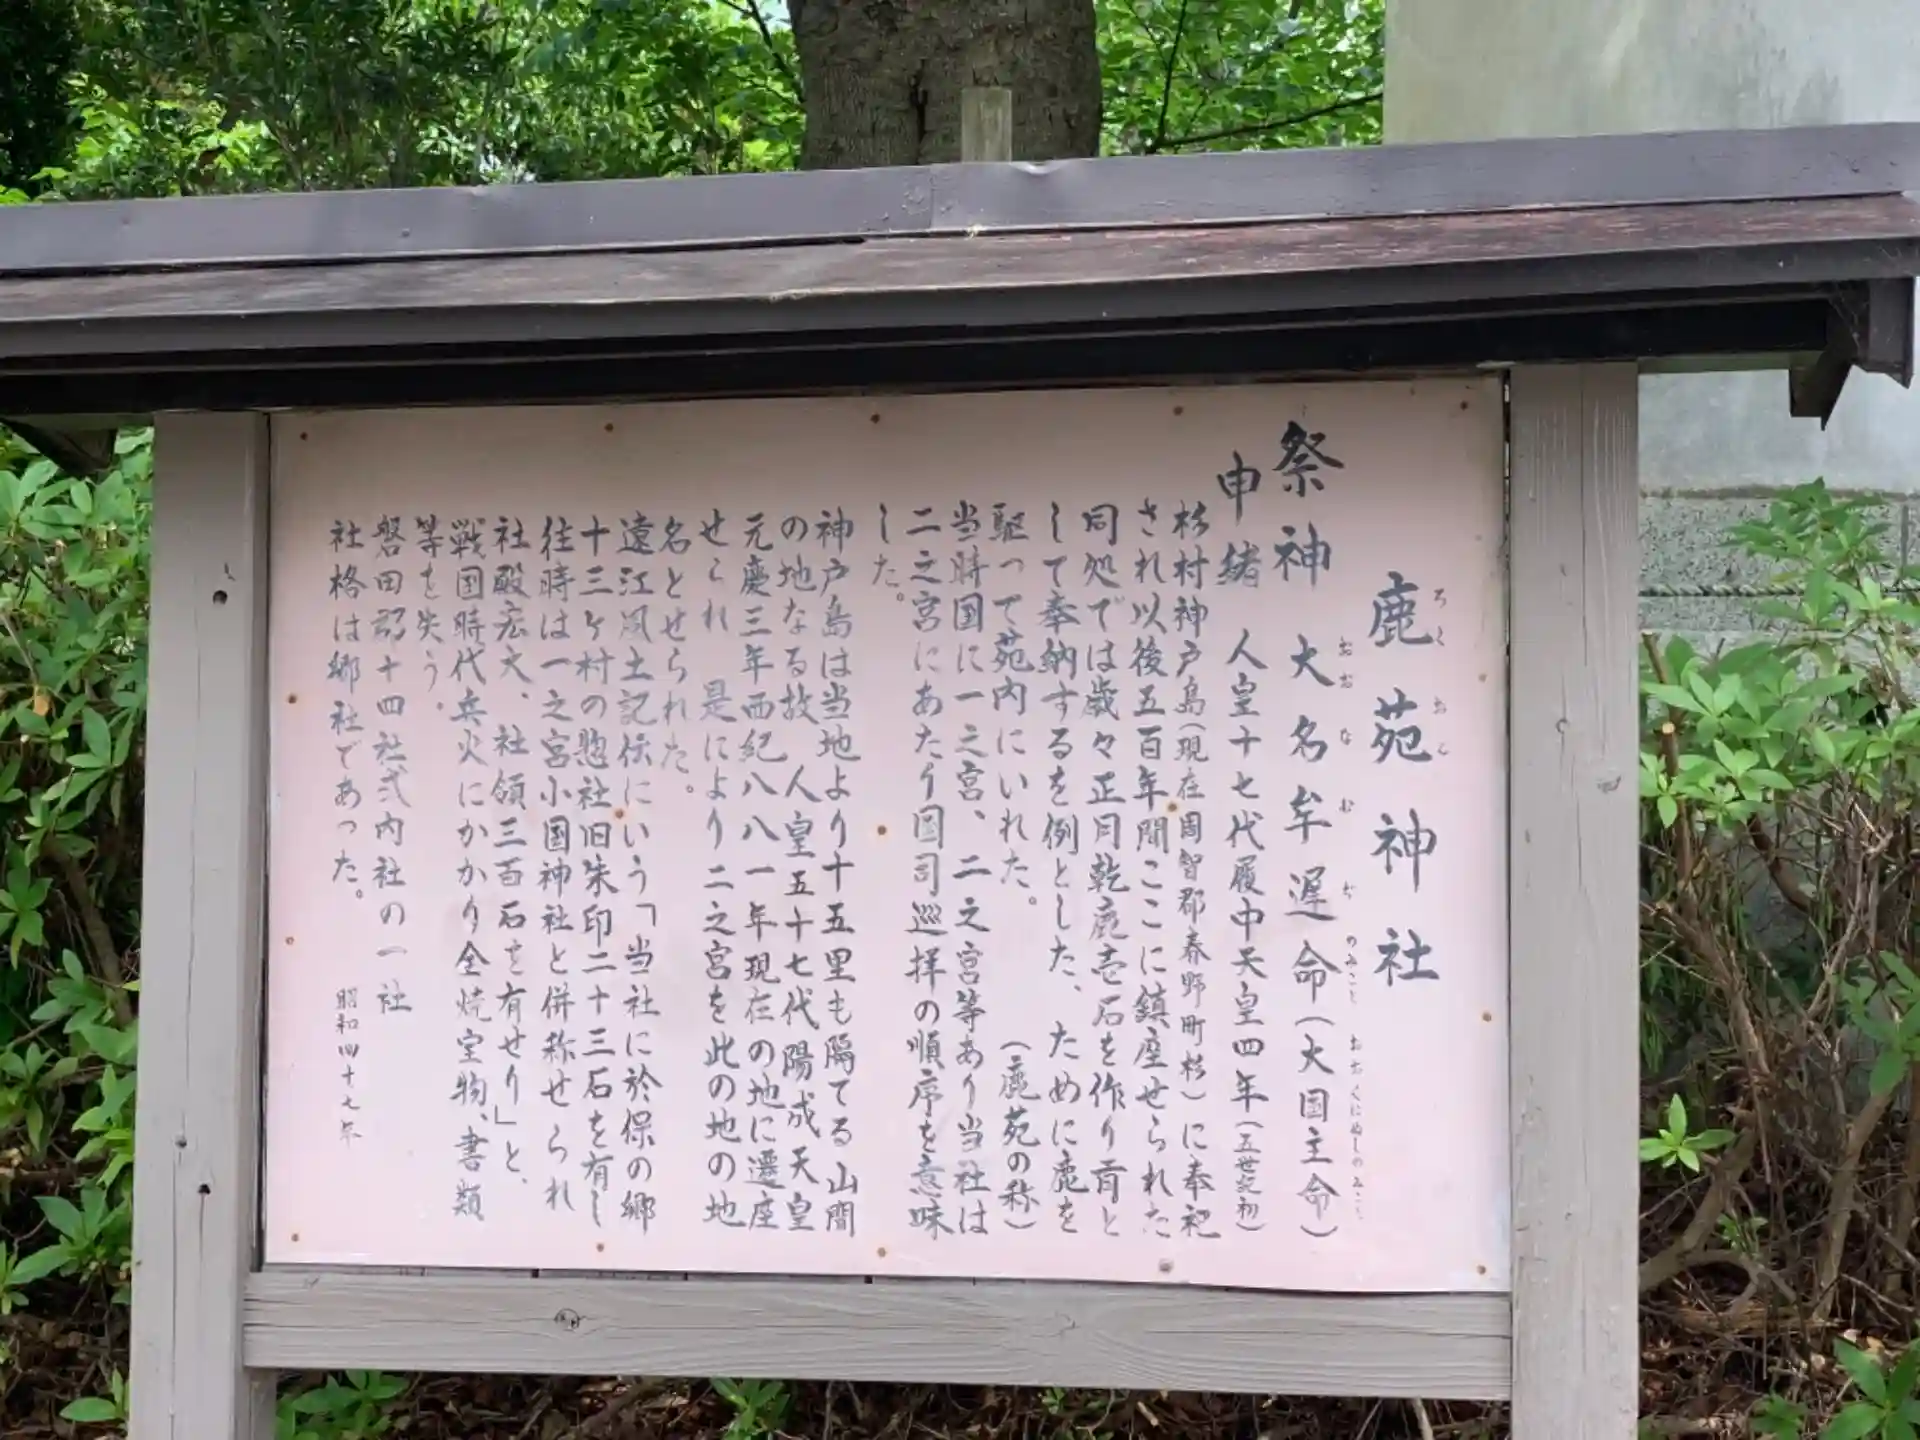 鹿苑神社
ろくおん
祭神 大名牟遅命(大国主命)
おおなむぢのみこと おおくにぬしのみこと
申緒 人皇十七代履中天皇四年(五世紀初)
杉村神戸島(現在周智郡春野町杉)に奉祀
され以後五百年間ここに鎮座せられた
同処では歳々正月乾鹿壱石を作り貢と
して奉納するを例とした、ために鹿を
駆って苑内にいれた。 (鹿苑の称)
当時国に一之宮、二之宮等あり当社は
二之宮にあたり国司巡拝の順序を意味
した。
神戸島は当地より十五里も隔てる山間
の地なる故 人皇五十七代陽成天皇
元慶三年西紀八八一年現在の地に遷座
せられ 是により二之宮を此の地の地
名とせられた。
遠江風土記伝にいう「当社に於保の郷
十三ヶ村の惣社旧朱印二十三石を有し
往時は一之宮小国神社と併称せられ
社殿宏大、社領三百石を有せり」と、
戦国時代兵火にかかり全焼宝物、書類
等を失う。
磐田郡十四社式内社の一社
社格は郷社であった。 昭和四十七年